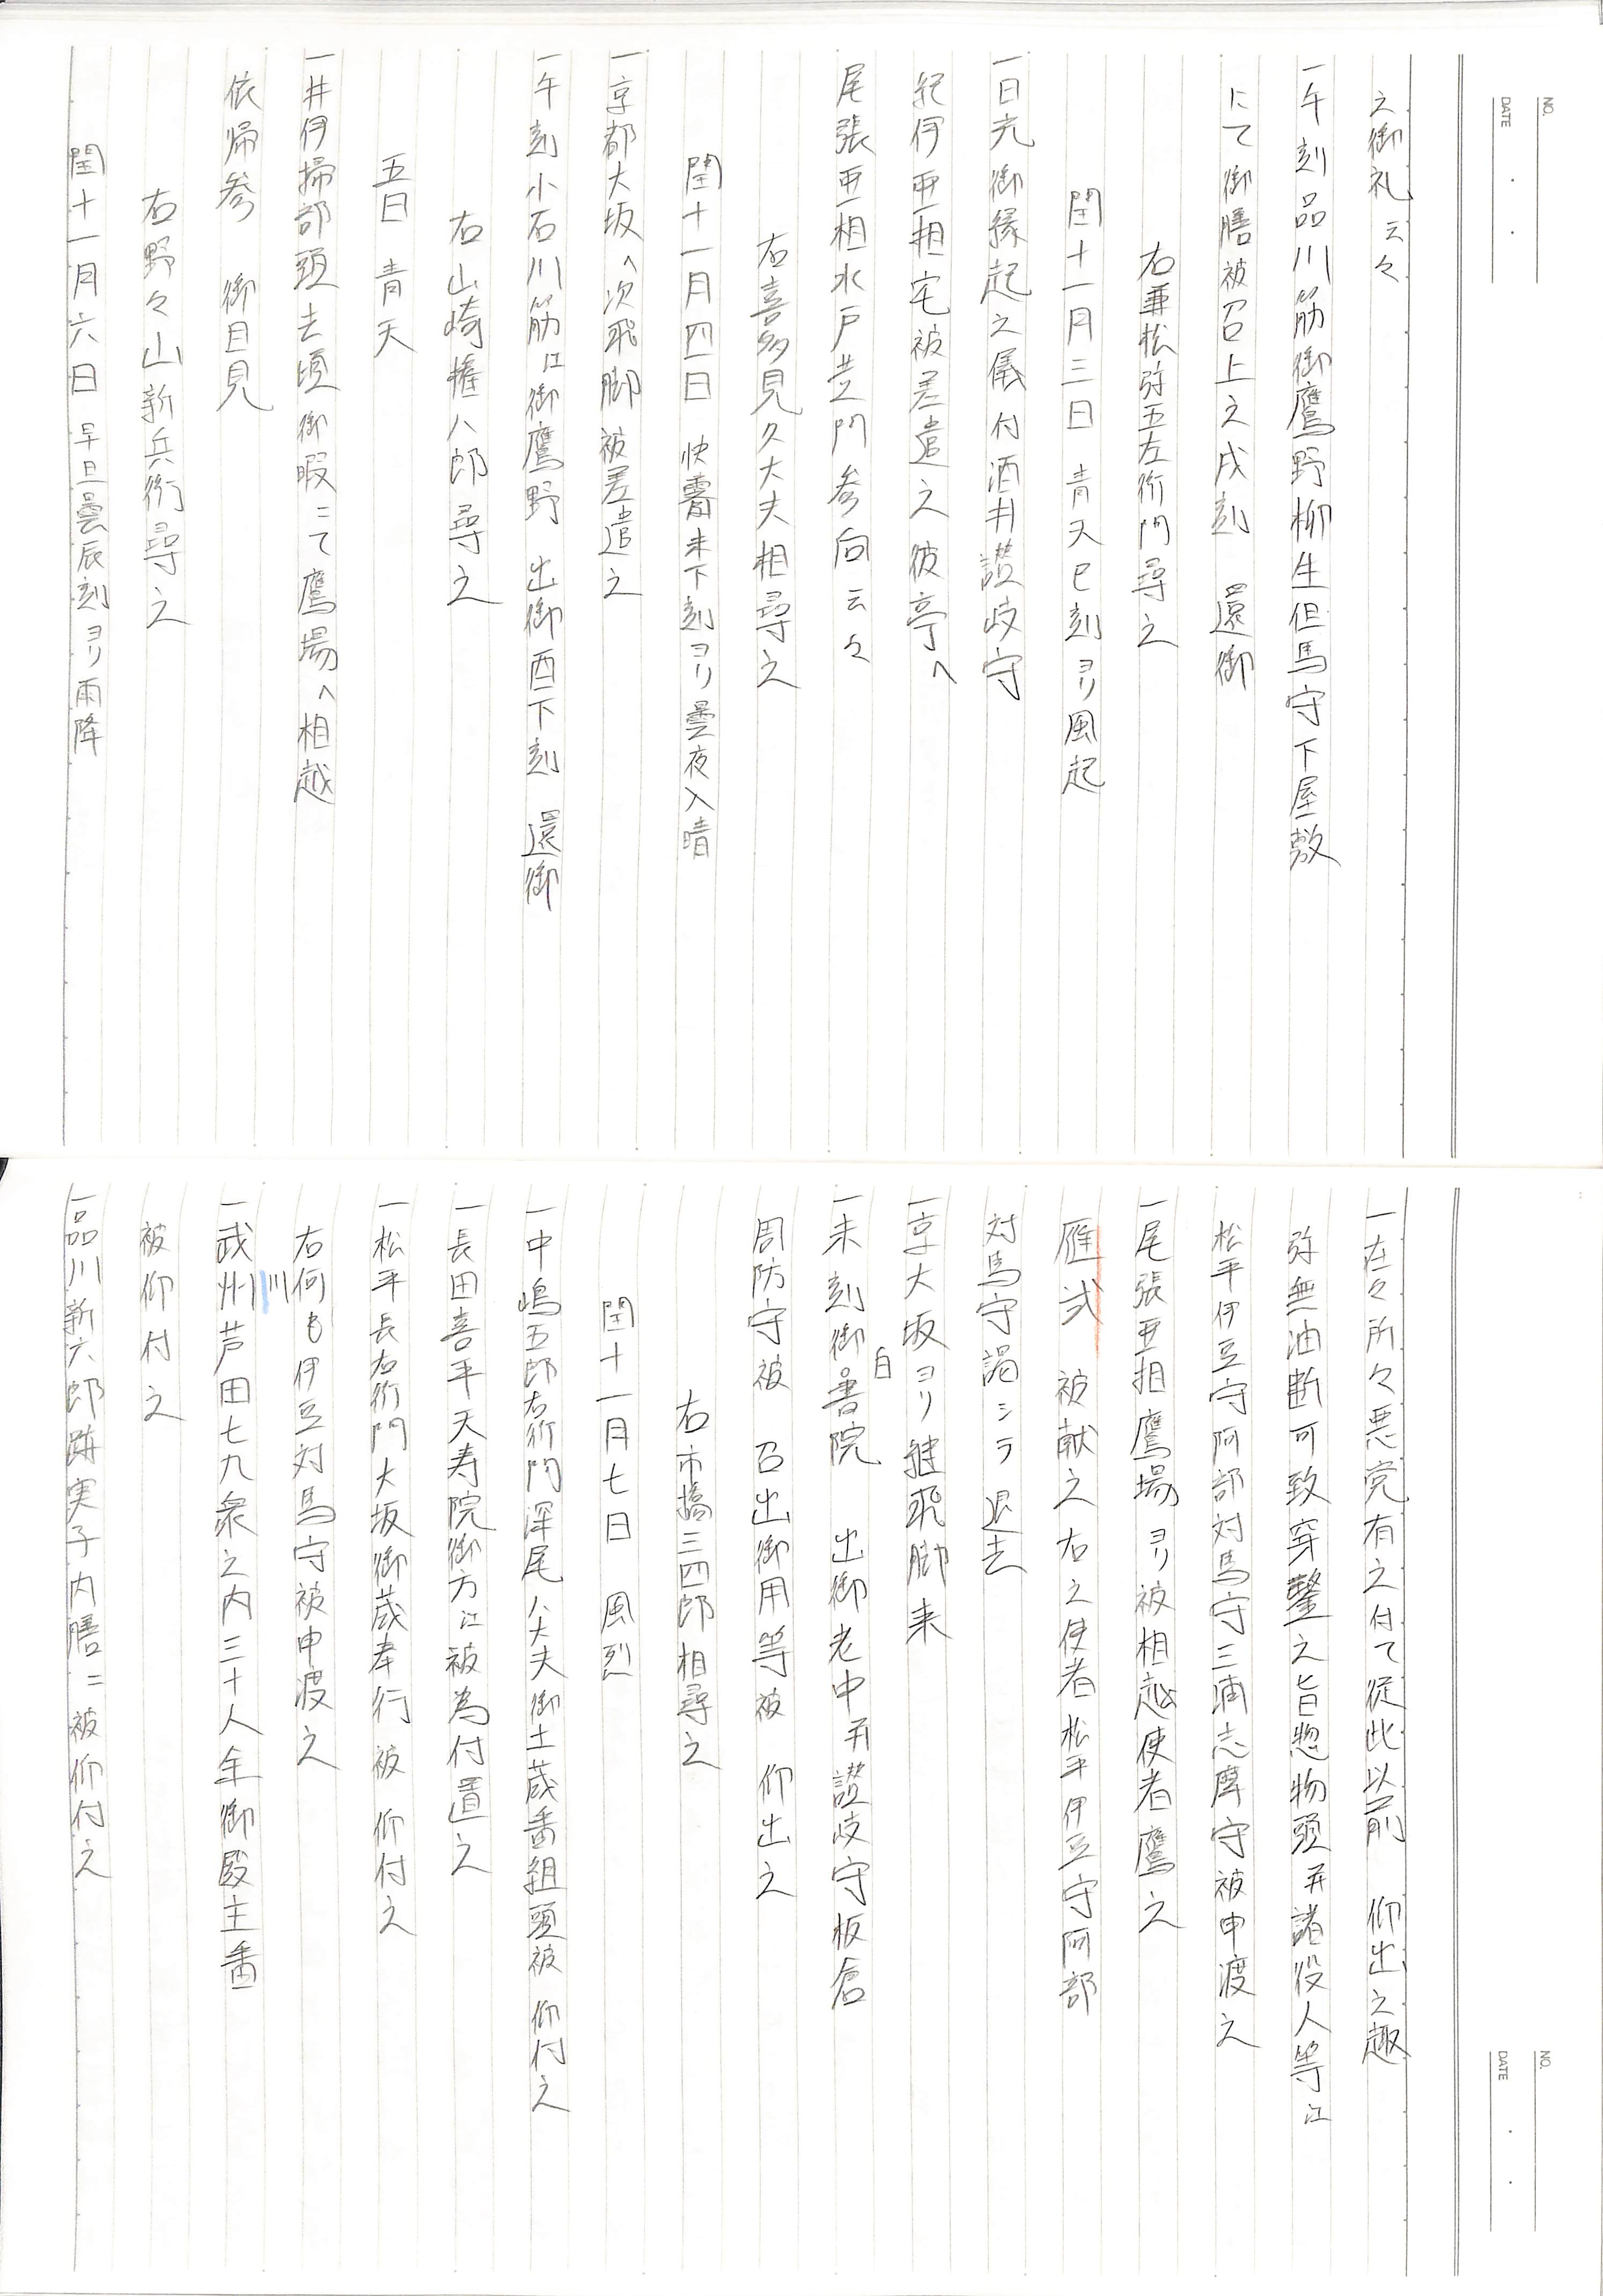 NO.
DATE
之御礼云々
一午刻品川筋御鷹野柳生但馬守下屋敷
にて御膳被召上之戌刻　還御
右兼松弥五左衛門尋之
閏十一月三日　青天巳刻ヨリ風起
一日光御縁起之儀付酒井讃岐守
紀伊亜相宅被差遣之彼亭へ
尾張亜相水戸黄門参向云々
右喜多見久大夫相尋之
閏十一月四日　快霽未下刻ヨリ曇夜入晴
一京都大坂へ次飛脚被差遣之
一午刻小石川筋江御鷹野　出御酉下刻　還御
右山崎権八郎尋之
五日　青天
一井伊掃部頭去頃御暇ニて鷹場へ相越
依帰参　御目見
右野々山新兵衛尋之
閏十一月六日　早旦曇辰刻ヨリ雨降
NO.
DATE
一在々所々悪党有之付て従此以前　仰出之趣
弥無油断可致穿鑿之旨惣物頭并諸役人等江
松平伊豆守阿部対馬守三浦志摩守被申渡之
一尾張亜相鷹場ヨリ被相越使者鷹之
雁弐　被献之右之使者松平伊豆守阿部
対馬守謁シテ退去
一京大坂ヨリ継飛脚来
一未刻御白書院　出御老中并讃岐守板倉
周防守被　召出御用等被　仰出之
右市橋三四郎相尋之
閏十一月七日　風烈
一中嶋五郎右衛門深尾八大夫御土蔵番組頭被　仰付之
一長田喜平天寿院御方江被為付置之
一松平長右衛門大坂御蔵奉行被　仰付之
右何も伊豆対馬守被申渡之
一武州川芦田七九衆之内三十人余御殿主番
被仰付之
一品川新六郎跡実子内膳ニ被仰付之